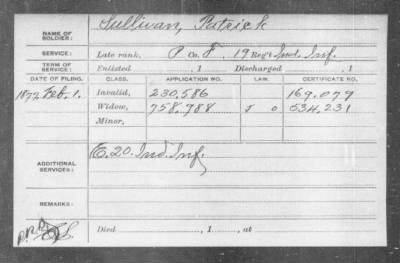 NAME OF SOLDIER: Sullivan, Patrick
SERVICE: Late rank, P. Co. F, 19 Reg't Ind. Inf.
TERM OF SERVICE: Enlisted , 1 Discharged , 1
DATE OF FILING. CLASS. APPLICATION NO. LAW. CERTIFICATE NO.
1872 Feb. 1. Invalid, 230.586 169.079
Widow, 758.988 J O 534.231
Minor,
ADDITIONAL SERVICES: E. 20. Ind. Inf.
REMARKS:
Died , 1 , at